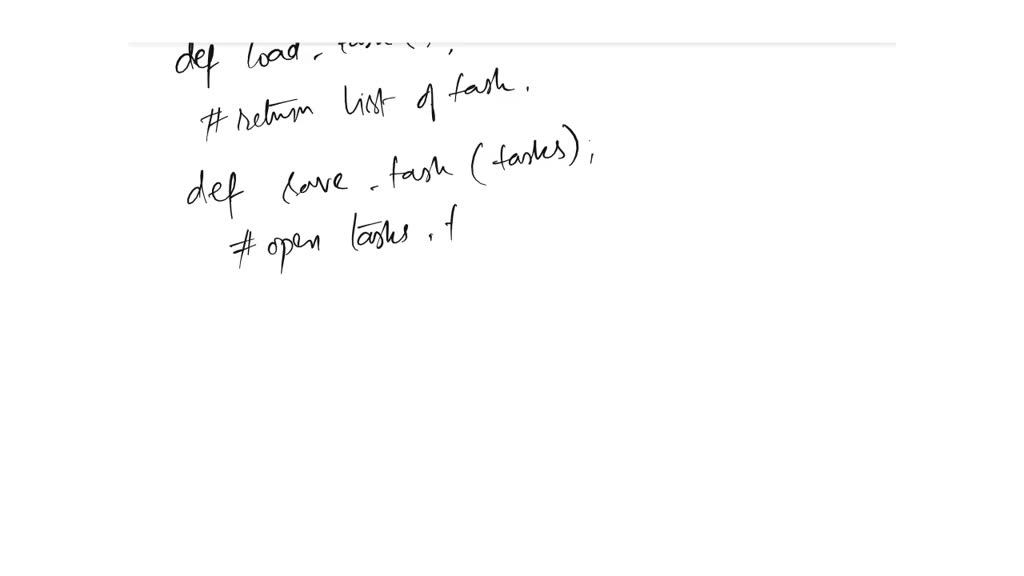 def load. task();
# return list of task.
def save. task (tasks);
# open tasks. t